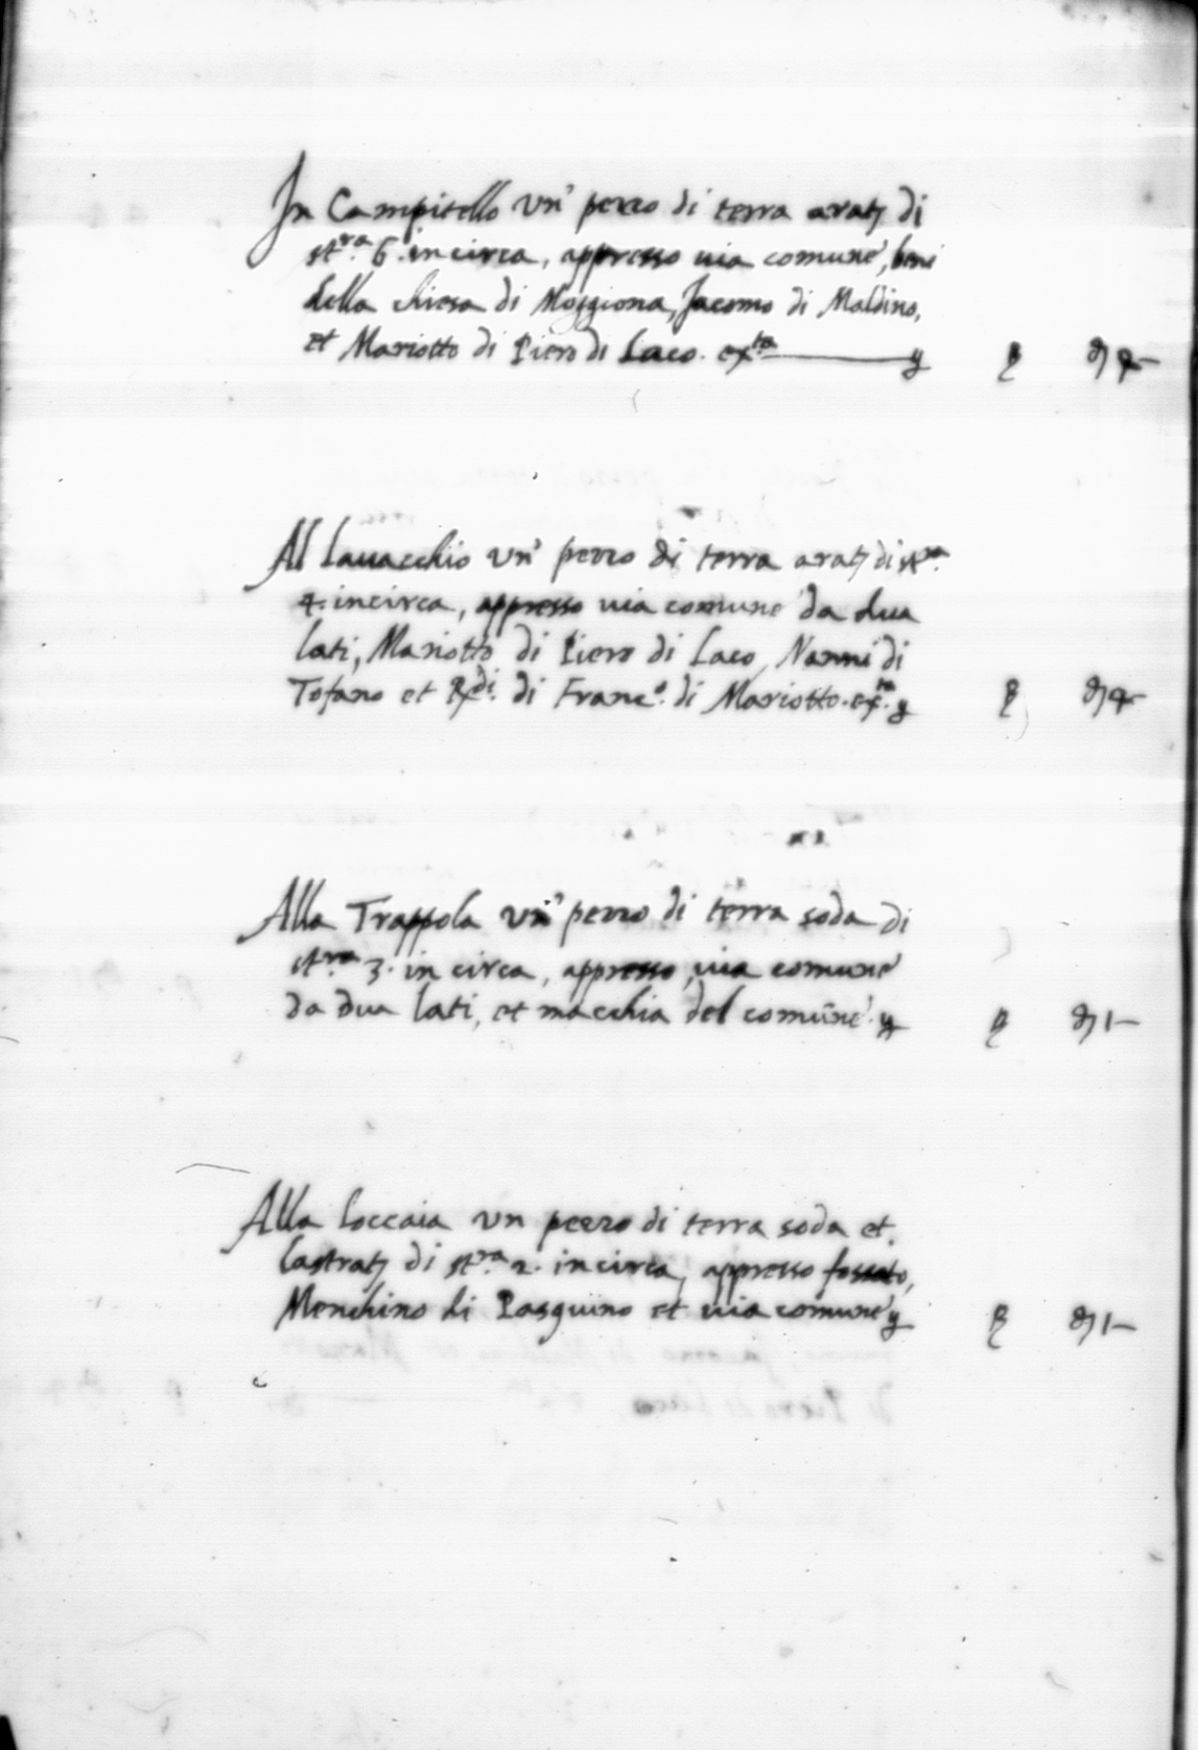 In Campitello vn' pezzo di terra aratᵃ di
stʳᵃ. 6. in circa, appresso uia comune, beni
della chiesa di Moggiona, Jacomo di Maldino,
et Mariotto di Piero di Laco. exᵗᵃ
Al Lauacchio vn' pezzo di terra aratᵃ di stʳᵃ.
4. in circa, appresso uia comune da dua
lati, Mariotto di Piero di Laco, Nanni di
Tofano et Rᵈⁱ. di Francᵒ. di Mariotto. exᵗᵃ.
Alla Trappola vn' pezzo di terra soda di
stʳᵃ 3. in circa, appresso, uia comune
da dua lati, et macchia del comune.
Alla Loccaia vn pezzo di terra soda et.
lastratᵃ di stʳᵃ. 2. in circa, appresso fossato,
Menchino di Pasquino et uia comune